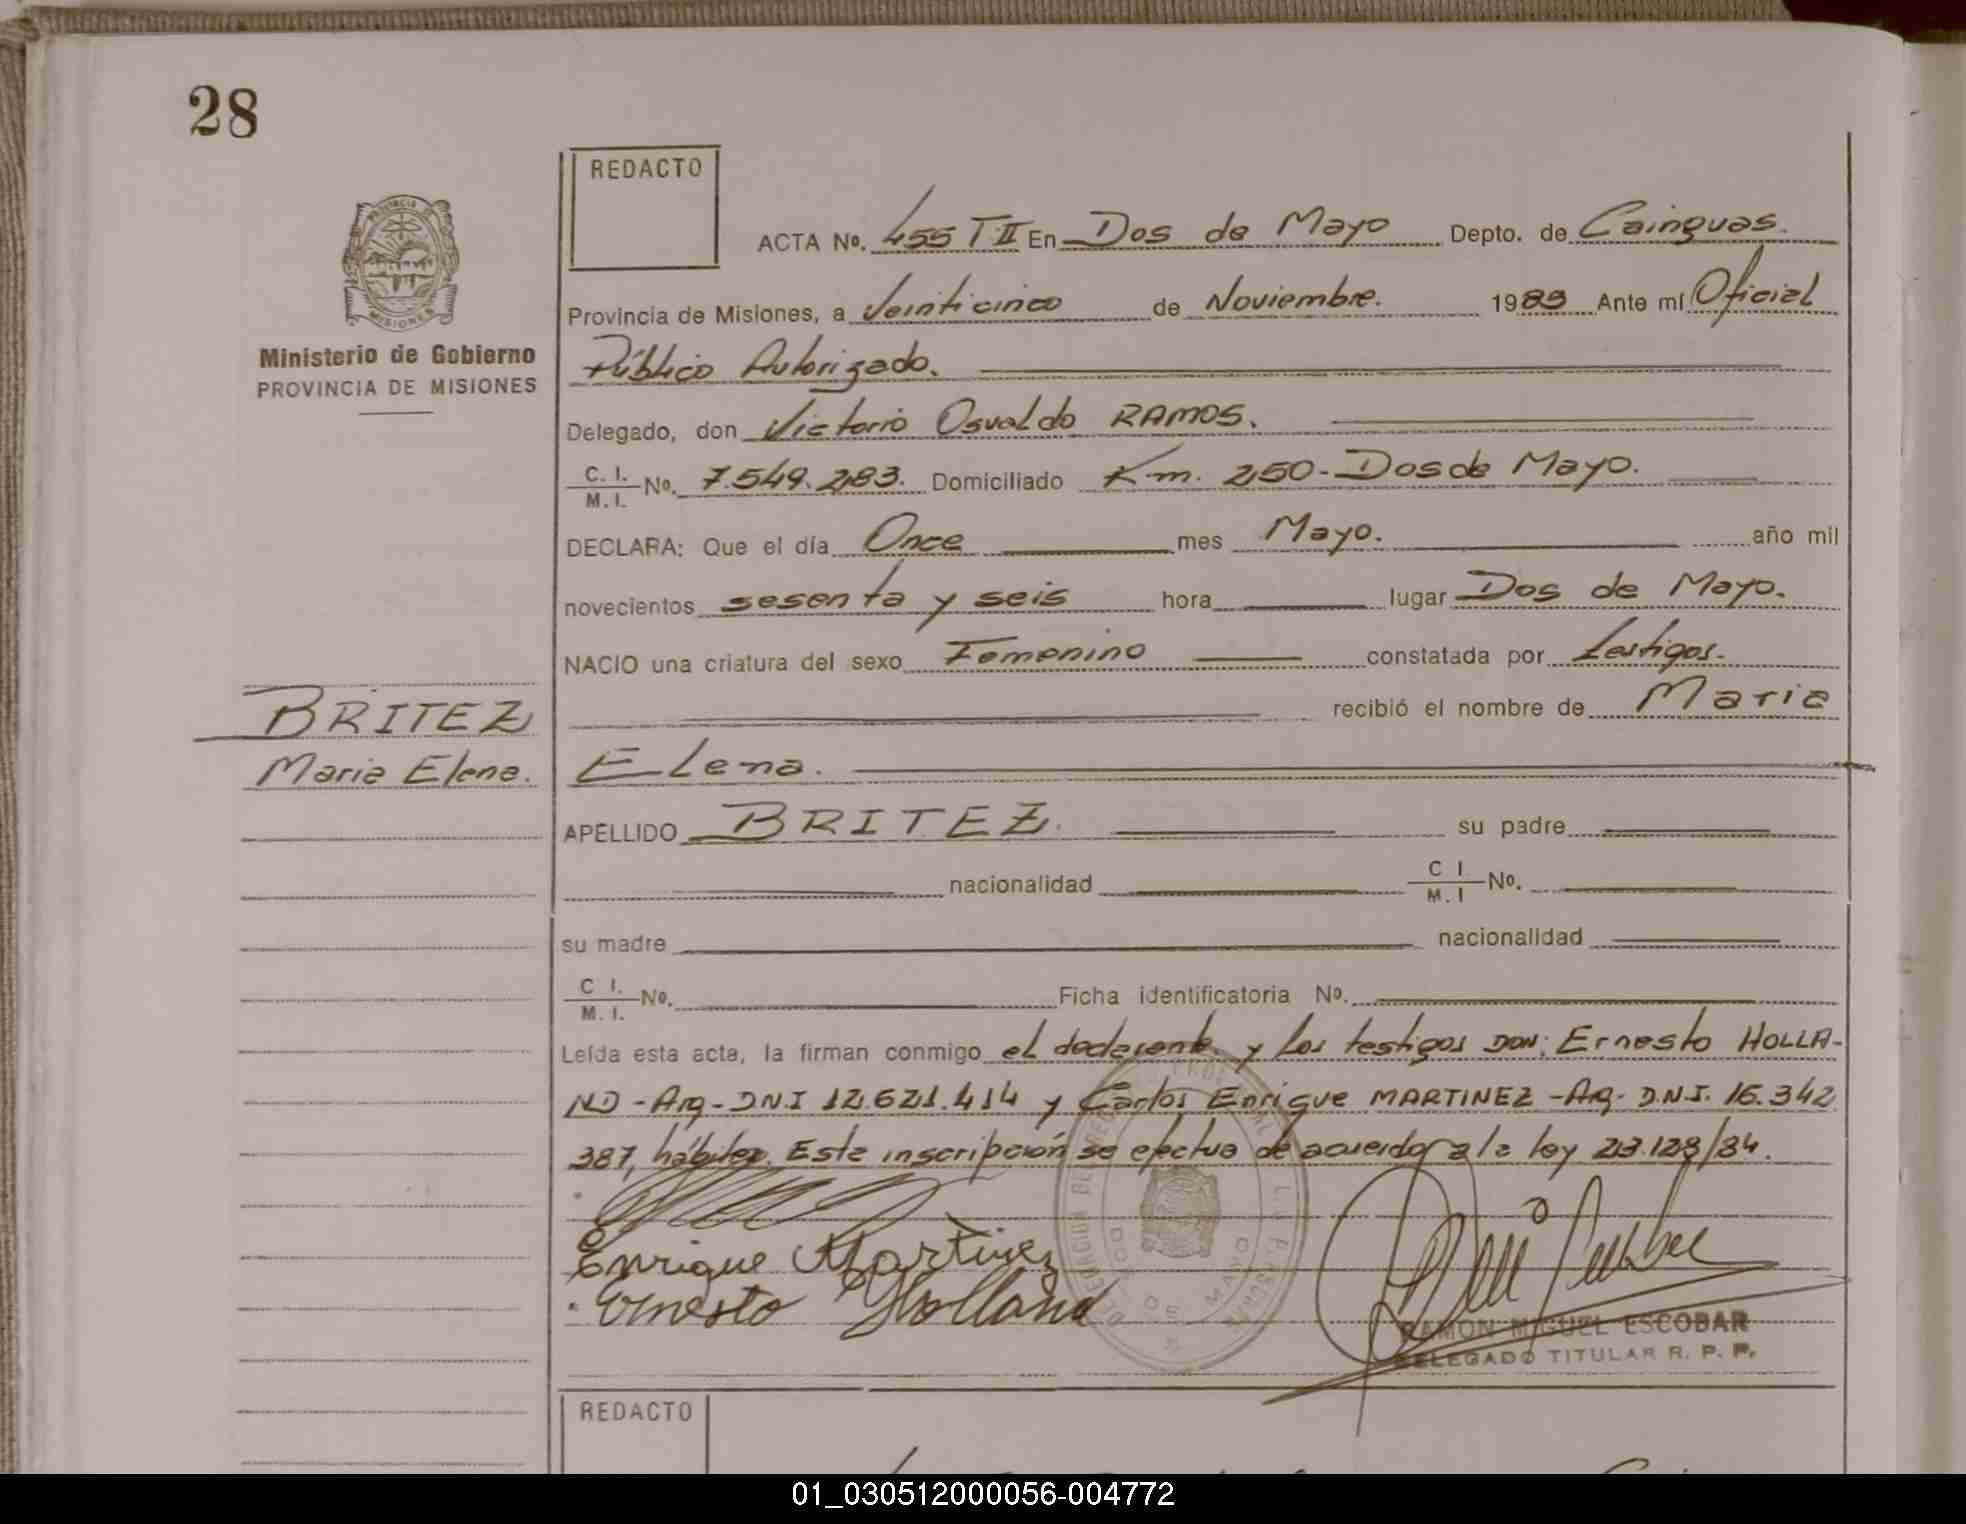 28
REDACTO
ACTA No. 455 T II En Dos de Mayo Depto. de Cainguas.
Provincia de Misiones, a Veinticinco de Noviembre. 1989 Ante mí Oficial
Público Autorizado.
Delegado, don Victorio Osvaldo RAMOS.
C. I. / M. I. No. 7.549.283. Domiciliado Km. 250 - Dos de Mayo.
DECLARA: Que el día Once mes Mayo. año mil
novecientos sesenta y seis hora lugar Dos de Mayo.
NACIO una criatura del sexo Femenino constatada por testigos.
recibió el nombre de Maria
Elena.
APELLIDO BRITEZ. su padre
nacionalidad C I / M. I No.
su madre nacionalidad
C I. / M. I. No. Ficha identificatoria No.
Leída esta acta, la firman conmigo el declarante y los testigos DON: Ernesto HOLLA-
ND - Arg - D.N.I 12.621.414 y Carlos Enrique MARTINEZ - Arg. D.N.I. 16.342
387, hábiles. Esta inscripción se efectua de acuerdo a la ley 23.128/84.
Enrique Martinez
Ernesto Holland
RAMON MIGUEL ESCOBAR
DELEGADO TITULAR R. P. P.
DOS DE MAYO
PROVINCIA DE
MISIONES
Ministerio de Gobierno
PROVINCIA DE MISIONES
BRITEZ
Maria Elena.
REDACTO
01_030512000056-004772